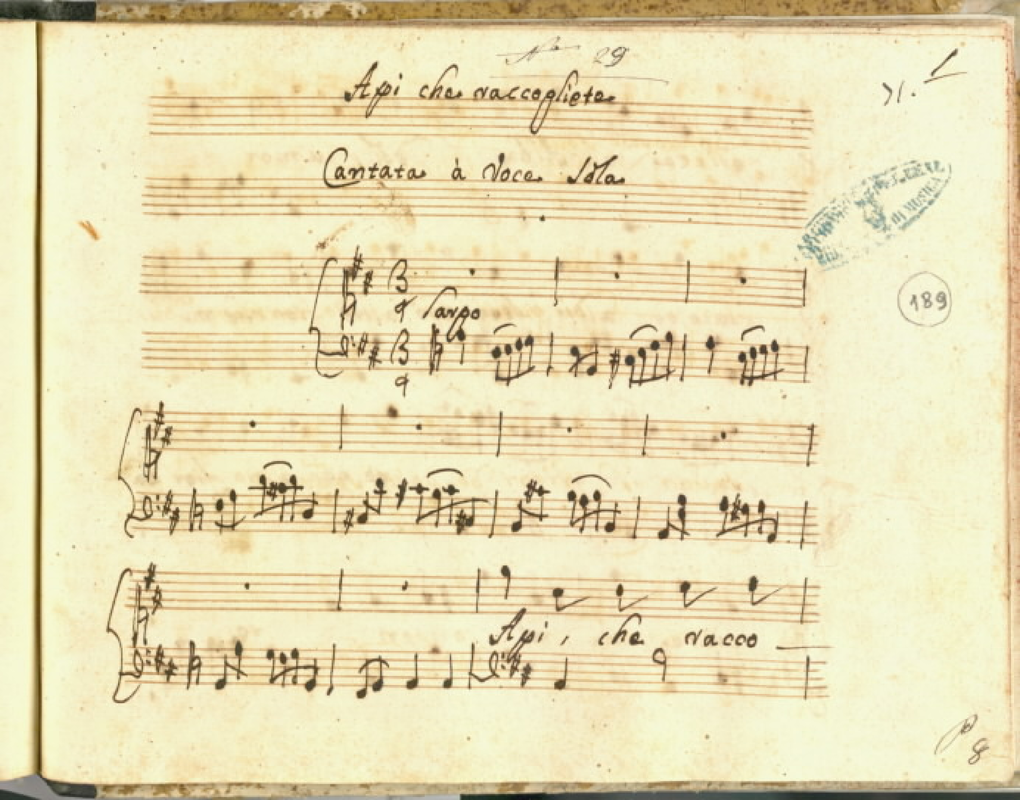 N.º 29
1
Api che raccogliete
Cantata à Voce Sola
189
3
4 Largo
3
4
Api, che racco
8